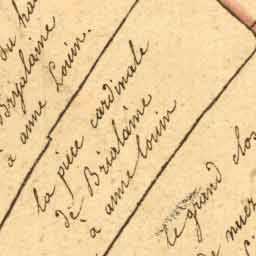 du
Bryalaine
à anne Louin.
la piece cardinale
dè Brialaine
à anne louin
le grand clos
de